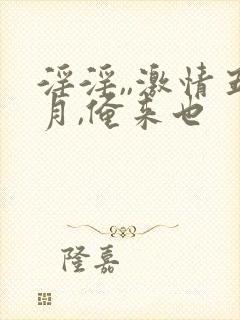 淫淫,,激情五
月,俺来也
隆嘉